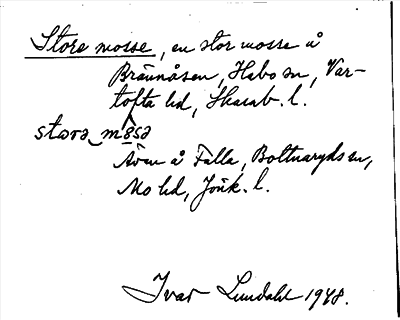 Store mosse, en stor mosse å
Brännåsen, Habo sn, Var-
tofta hd, Skarab. l.
storə mosə
Även å Fälla, Bottnaryds sn,
Mo hd, Jönk. l.
Ivar Lundahl 1948.